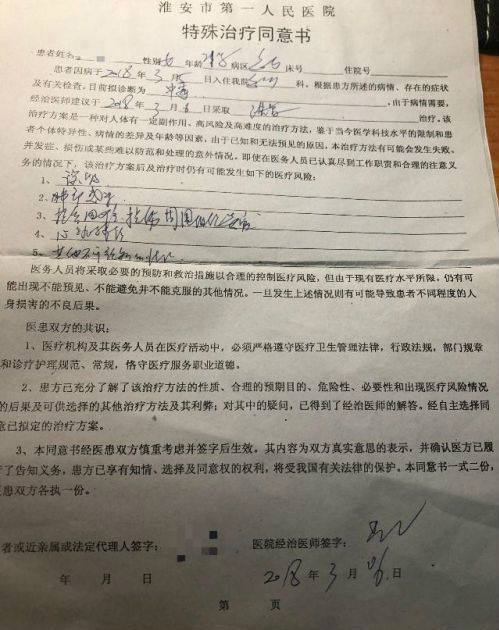 淮安市第一人民医院
特殊治疗同意书
患者姓名 性别 女 年龄 病区 床号 住院号
患者因病于2018年3月5日入住我院 科。根据患方所述的病情、存在的症状
及有关检查,目前拟诊断为 中毒 。由于病情需要,
经治医师建议于2018年3月6日采取 洗胃 治疗。该
治疗方案是一种对人体有一定副作用、高风险及高难度的治疗方法,鉴于当今医学科技水平的限制和患
者个体特异性、病情的差异及年龄等因素,由于已知和无法预见的原因,本治疗方法有可能会发生失败、
并发症、损伤或某些难以防范和处理的意外情况。即使在医务人员已认真尽到工作职责和合理的注意义
务的情况下,该治疗方案后及治疗时仍有可能发生如下的医疗风险:
1、误吸
2、
3、
4、
5、其他不可预知的
医务人员将采取必要的预防和救治措施以合理的控制医疗风险,但由于现有医疗水平所限,仍有可
能出现不能预见、不能避免并不能克服的其他情况。一旦发生上述情况则有可能导致患者不同程度的人
身损害的不良后果。
医患双方的共识:
1、医疗机构及其医务人员在医疗活动中,必须严格遵守医疗卫生管理法律,行政法规,部门规章
和诊疗护理规范、常规,恪守医疗服务职业道德。
2、患方已充分了解了该治疗方法的性质、合理的预期目的、危险性、必要性和出现医疗风险情况
的后果及可供选择的其他治疗方法及其利弊;对其中的疑问,已得到了经治医师的解答。经自主选择同
意已拟定的治疗方案。
3、本同意书经医患双方慎重考虑并签字后生效。其内容为双方真实意思的表示,并确认医方已履
行了告知义务,患方已享有知情、选择及同意权的权利,将受我国有关法律的保护。本同意书一式二份,
医患双方各执一份。
者或近亲属或法定代理人签字: 医院经治医师签字:
年 月 日 2018年3月6日
第 页